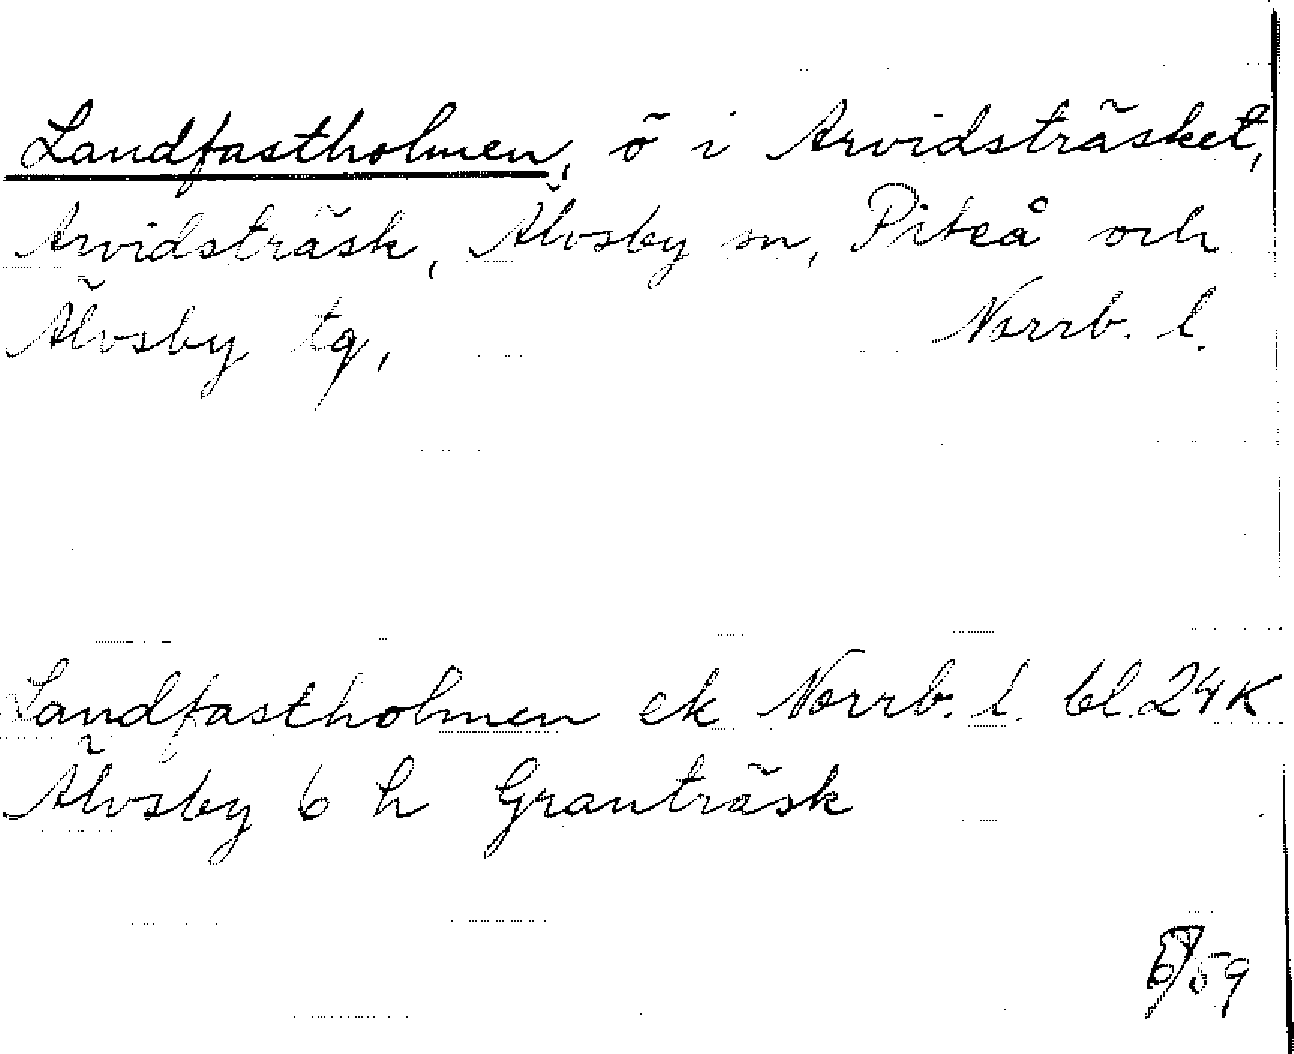 Landfastholmen, ö i Arvidsträsket,
Arvidsträsk, Älvsby sn, Piteå och
Älvsby tg, Norrb. l.
Landfastholmen ek Norrb. l. bl. 24K
Älvsby 6 h Granträsk
/59